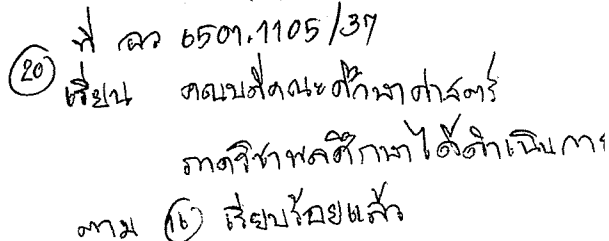 ที่ อว 6501.1105/37
(20) เรียน คณบดีคณะศึกษาศาสตร์
ภาควิชาพลศึกษาได้ดำเนินการ
ตาม (16) เรียบร้อยแล้ว